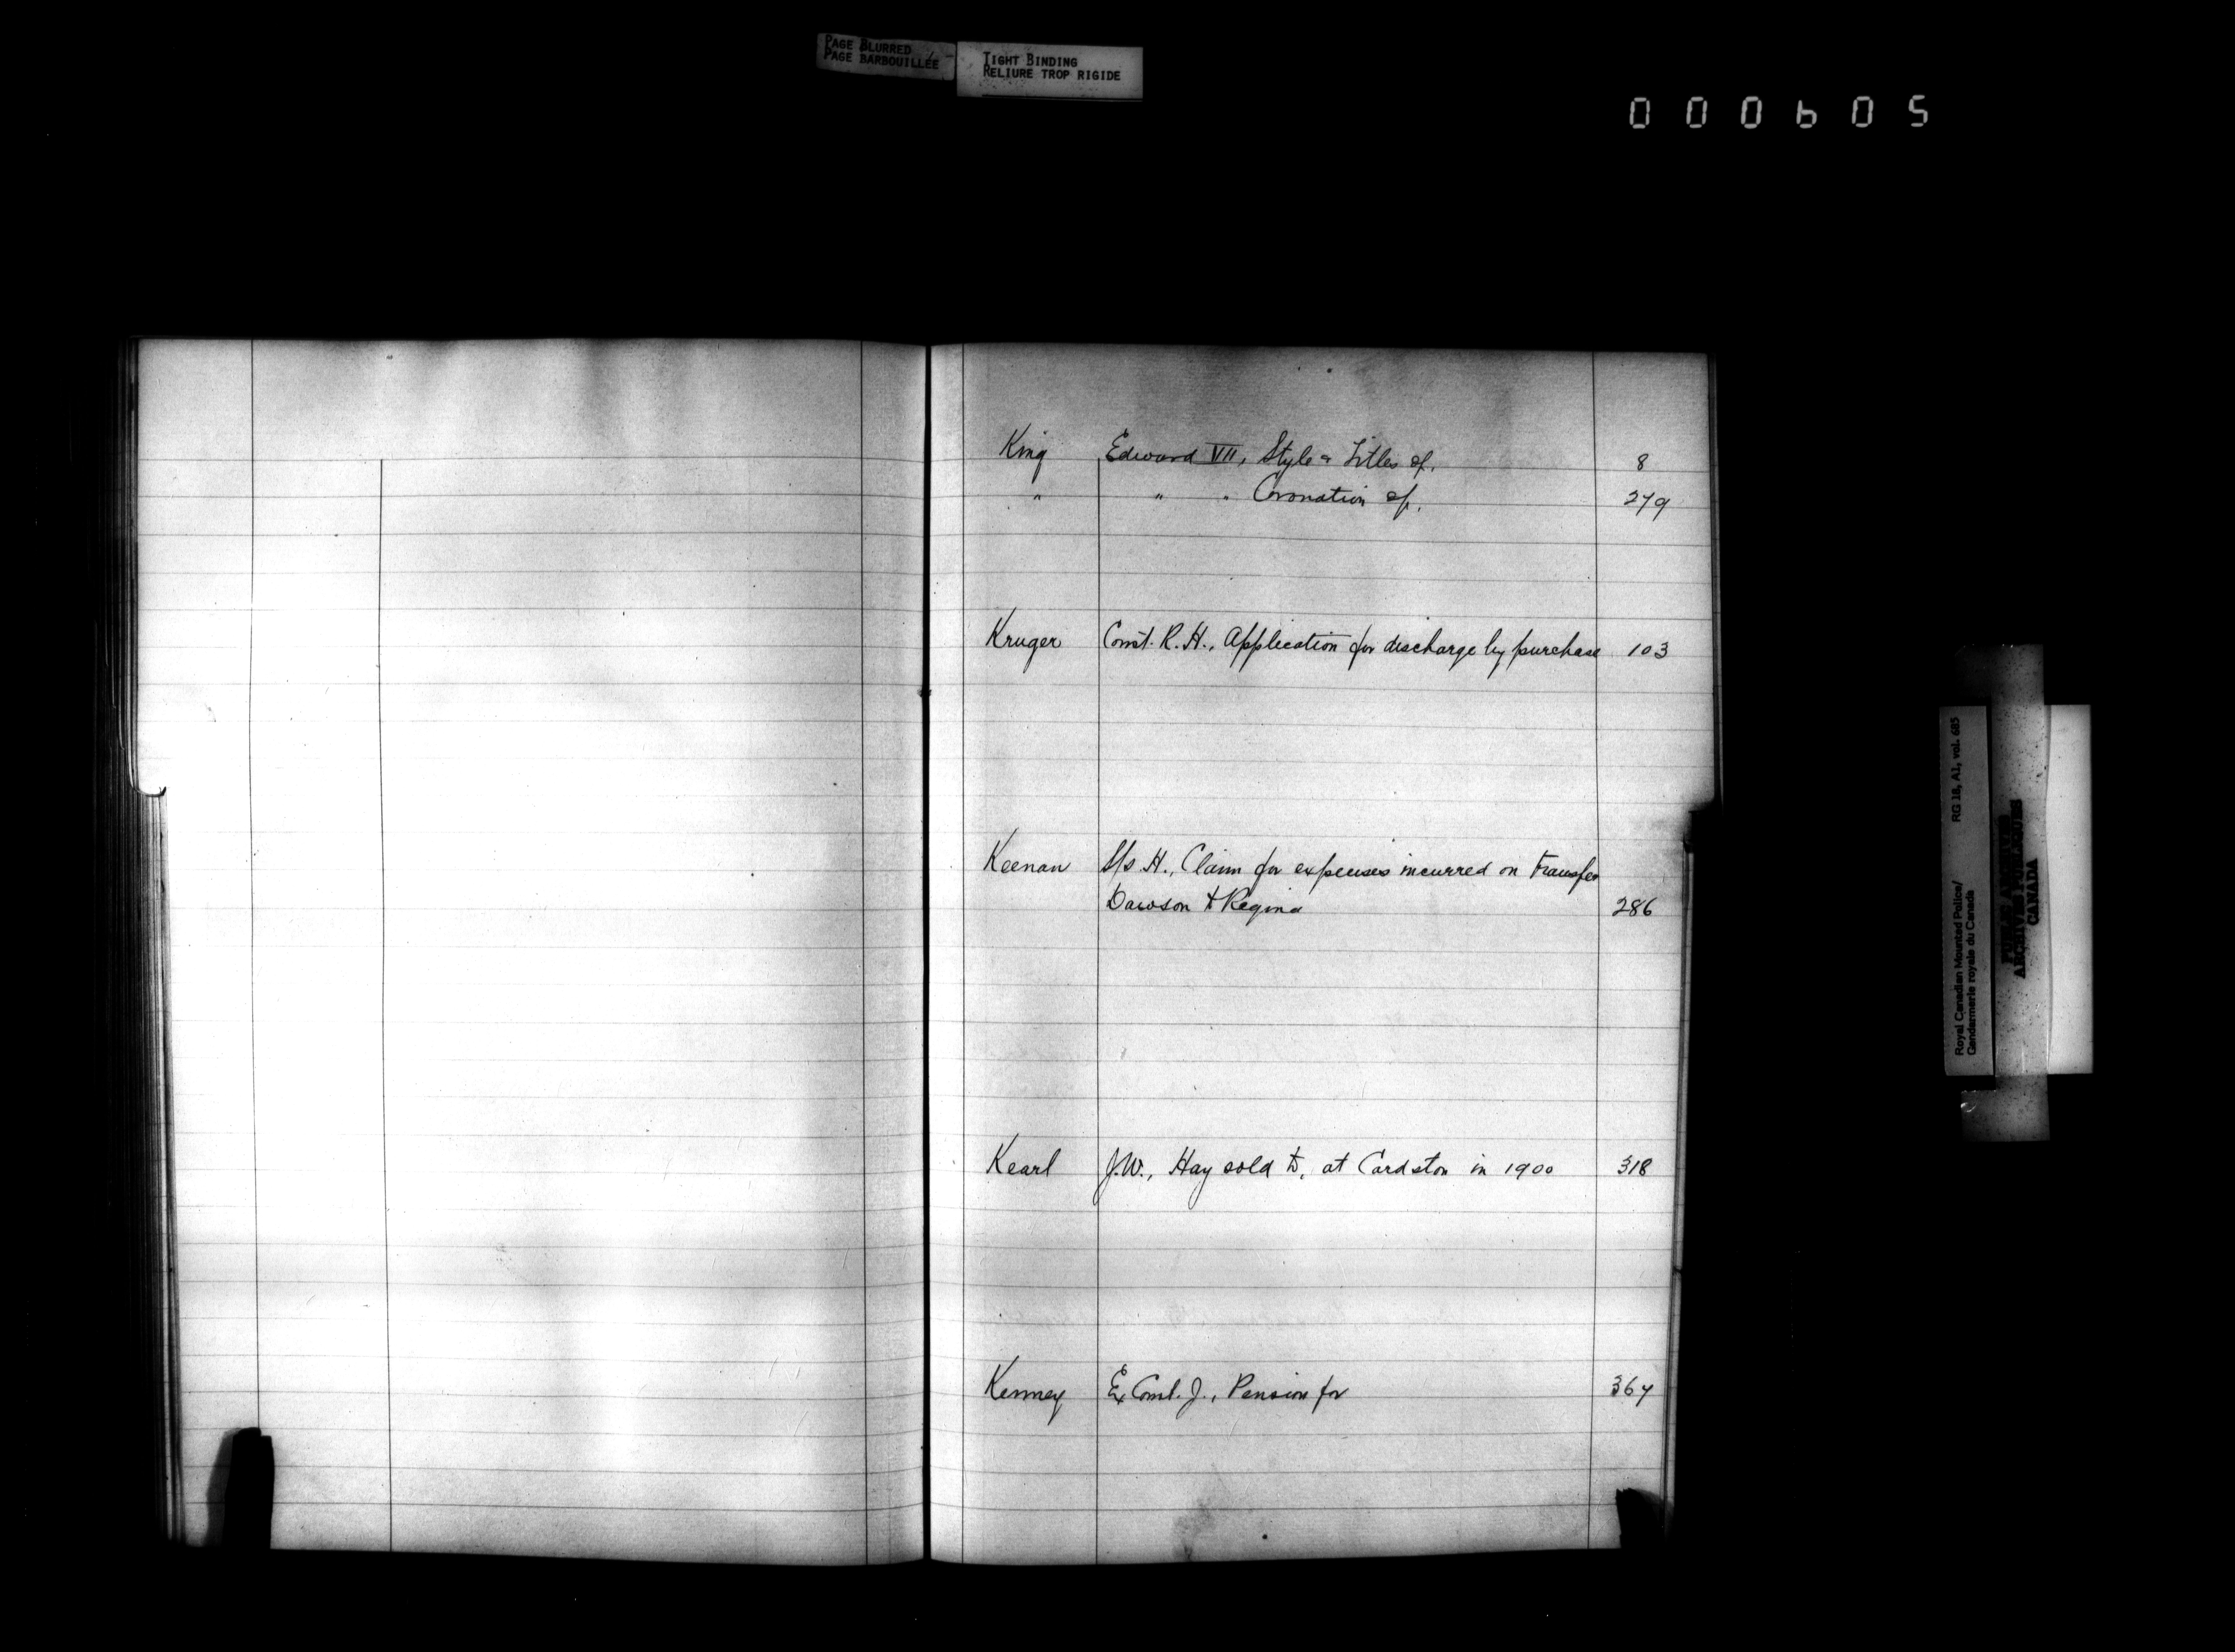 PAGE BLURRED
PAGE BARBOUILLÉE
TIGHT BINDING
RELIURE TROP RIGIDE
000605
King Edward VII, Style & Titles of. 8
" " " Coronation of. 279
Kruger Const. R. H., Application for discharge by purchase 103
Keenan S/S. H., Claim for expenses incurred on transfer
Dawson to Regina 286
Kearl J.W., Hay sold to, at Cardston in 1900 318
Kenney Ex Const. J., Pension for 367
Royal Canadian Mounted Police/ RG 18, A1, vol. 685
Gendarmerie royale du Canada
PUBLIC ARCHIVES
ARCHIVES PUBLIQUES
CANADA